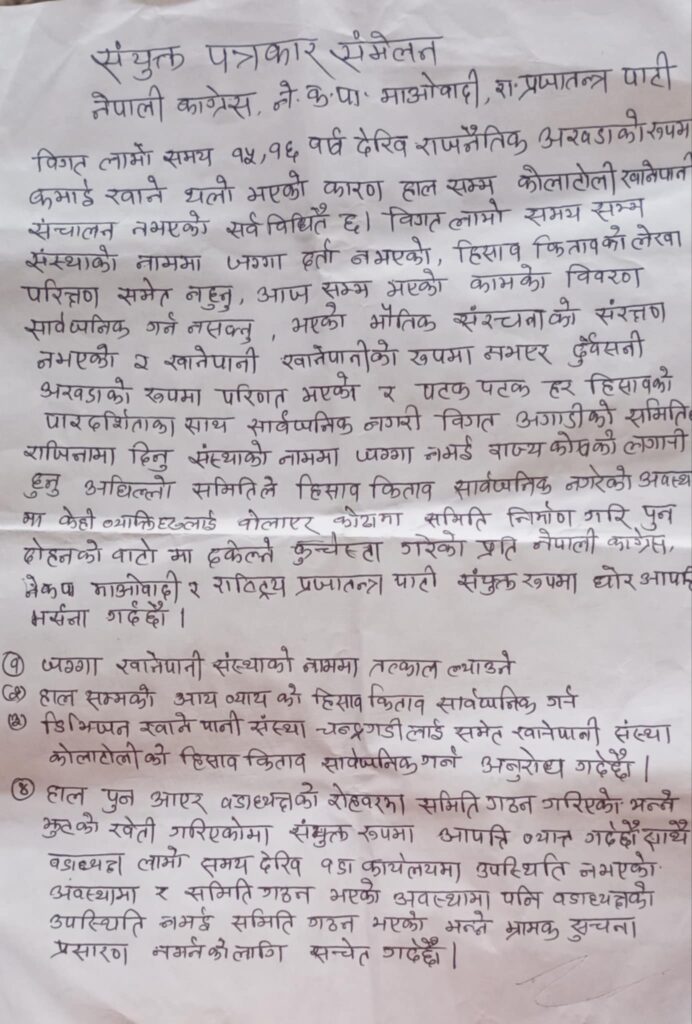 संयुक्त पत्रकार संमेलन
नेपाली काग्रेस, ने.क.पा. माओवादी, रा.प्रजातन्त्र पार्टी
विगत लामो समय १५,१६ वर्ष देखि राजनैतिक अखडाको रूपमा
कमाई खाने थलो भएको कारण हाल सम्म कोलाटोली खानेपानी
संचालन नभएको सर्व विधितै छ। विगत लामो समय सम्म
संस्थाको नाममा जग्गा दर्ता नभएको, हिसाव कितावको लेखा
परिक्षण समेत नहुनु, आज सम्म भएको कामको विवरण
सार्वज्जनिक गर्न नसक्नु, भएको भौतिक संरचनाको संरक्षण
नभएको र खानेपानी खानेपानीको रूपमा नभएर दुर्वेसनी
अखडाको रूपमा परिणत भएको र पटक पटक हर हिसावको
पारदर्शिताका साथ सार्वज्जनिक नगरी विगत अगाडीको समिति
राजिनामा दिनु संस्थाको नाममा जग्गा नभई राज्य कोषको लगानी
हुनु अघिल्लो समितिले हिसाव किताव सार्वज्जनिक नगरेको अवस्था
मा केही व्यक्तिहरुलाई वोलाएर कोठामा समिति निर्माण गरि पुन
दोहनको वाटो मा ढकेल्ने कुचेस्ता गरेको प्रति नेपाली काग्रेस,
नेकपा माओवादी र राष्ट्रिय प्रजातन्त्र पार्टी संयुक्त रूपमा घोर आपत्ति
भर्सना गर्दछौ।
१ जग्गा खानेपानी संस्थाको नाममा तत्काल ल्याउने
२ हाल सम्मको आय व्याय को हिसाव किताव सार्वज्जनिक गर्न
३ डिभिजन खाने पानी संस्था चन्द्रगडीलाई समेत खानेपानी संस्था
कोलाटोलीको हिसाव किताव सार्वज्जनिक गर्न अनुरोध गर्दछौ।
४ हाल पुन आएर वडाध्यक्षको रोहवरमा समिति गठन गरिएको भन्ने
झुटको खेती गरिएकोमा संयुक्त रूपमा आपति व्यात्त गर्दछौ साथै
वडाध्यक्ष लामो समय देखि वडा कार्यलयमा उपस्थिति नभएको
अवस्थामा र समिति गठन भएको अवस्थामा पनि वडाध्यक्षको
उपस्थिति नभई समिति गठन भएको भन्ने भ्रामक सुचना
प्रसारण नगर्नको लागि सचेत गर्दछौ।